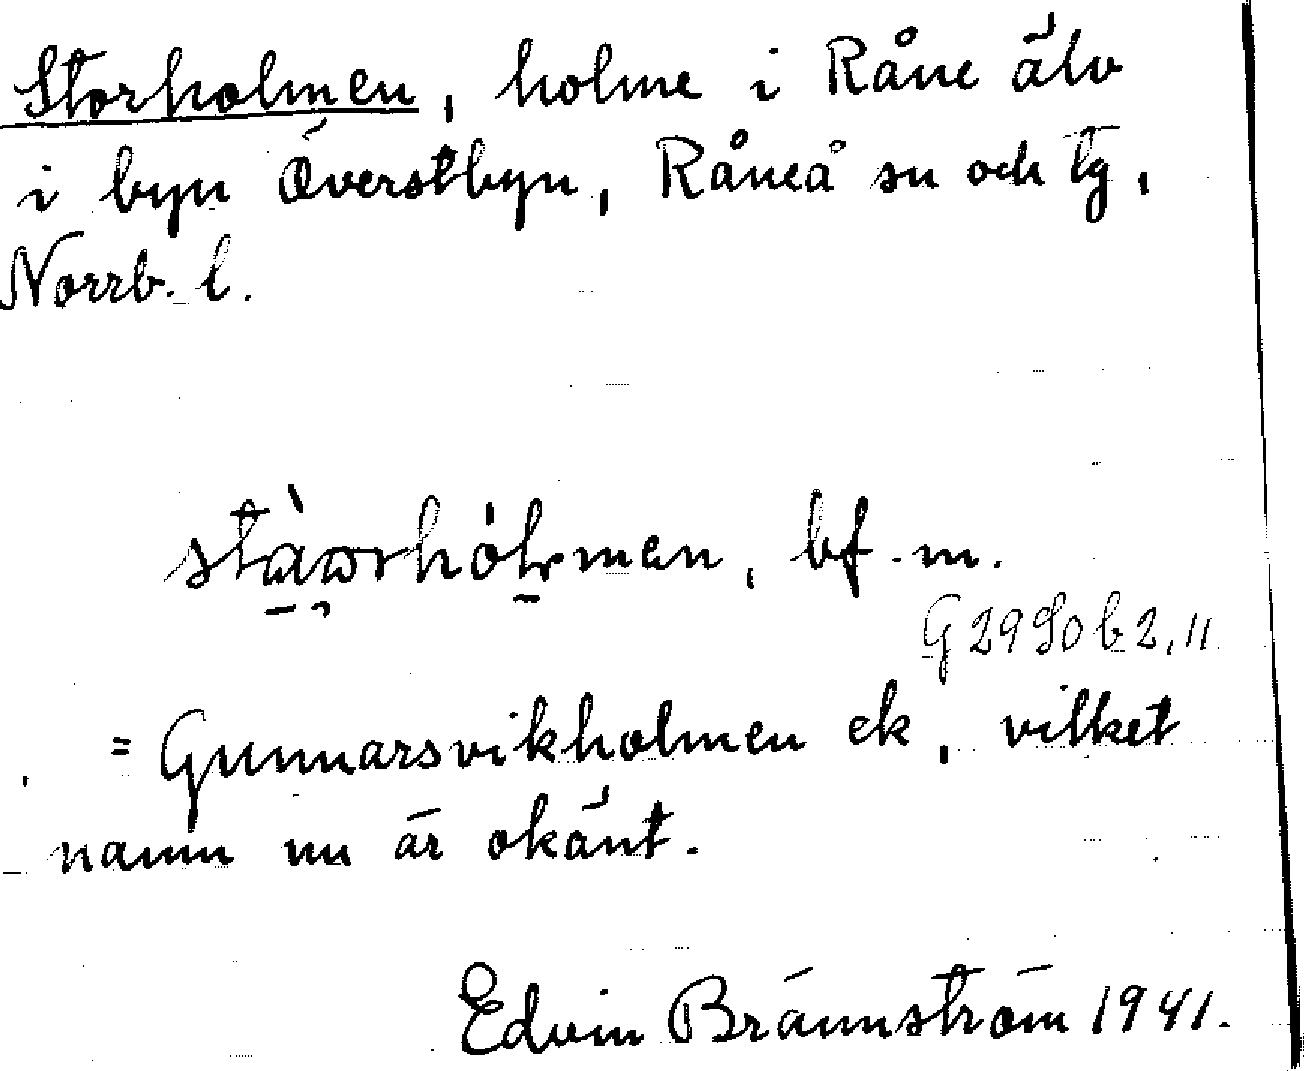 Storholmen, holme i Råne älv
i byn Överstbyn, Råneå sn och tg,
Norrb. l.
bf. m.
G 29 So b 2, 11
= Gunnarsvikholmen ek, vilket
namn nu är okänt.
Edvin Brännström 1941.